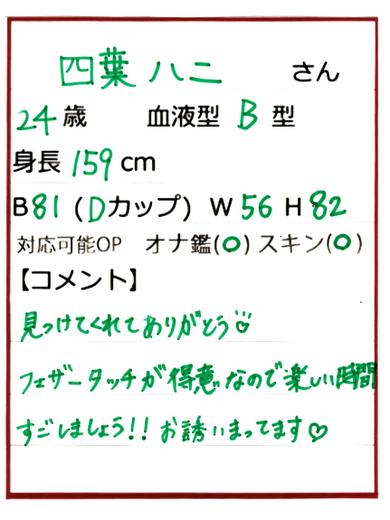 四葉 ハニ さん
24歳 血液型 B 型
身長 159 cm
B81 (Dカップ) W 56 H 82
対応可能OP オナ鑑(○) スキン(○)
【コメント】
見つけてくれてありがとう
フェザータッチが得意なので楽しい時間
すごしましょう!! お誘いまってます♡